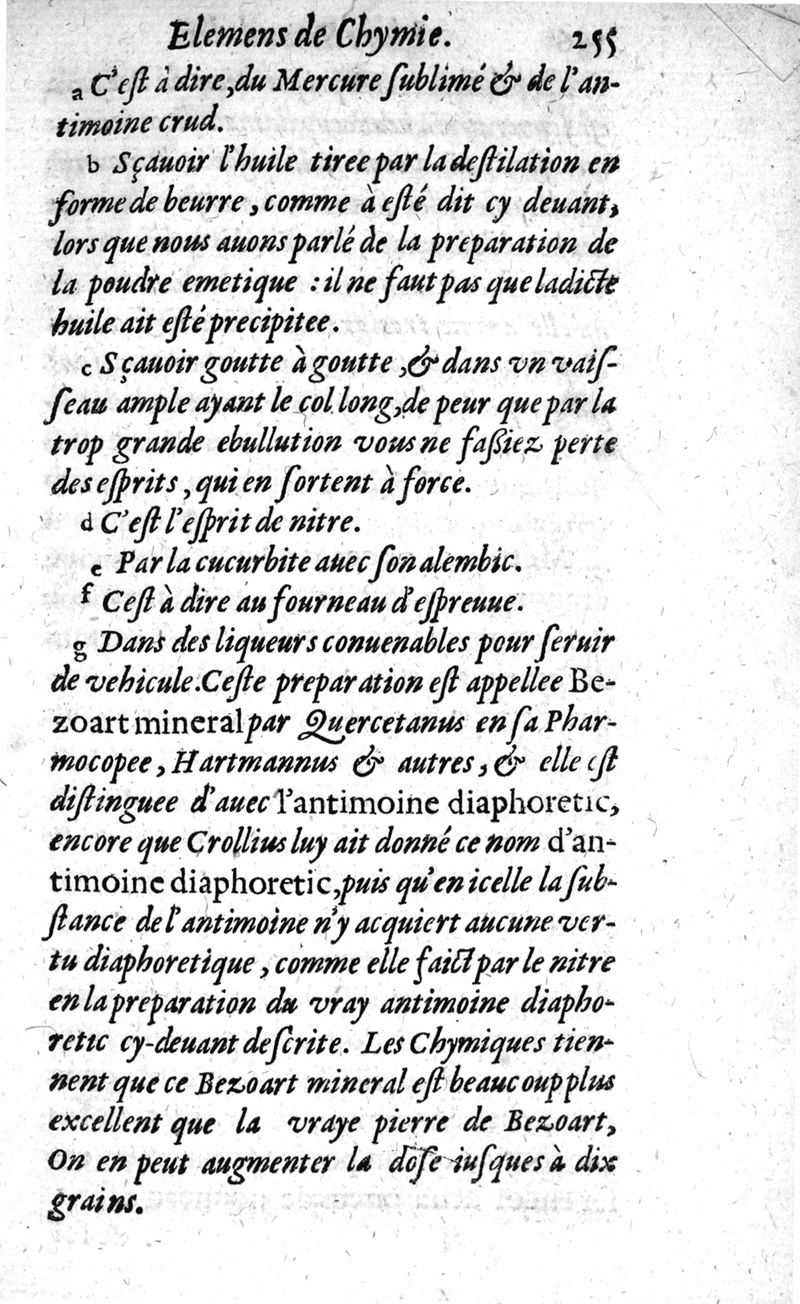 Elemens de Chymie. 255
a C'eſt à dire, du Mercure ſublimé & de l'an-
timoine crud.
b Sçauoir l'huile tiree par la deſtilation en
forme de beurre, comme à eſté dit cy deuant,
lors que nous auons parlé de la preparation de
la poudre emetique : il ne faut pas que ladicte
huile ait eſté precipitee.
c Sçauoir goutte à goutte, & dans vn vaiſ-
ſeau ample ayant le col long, de peur que par la
trop grande ebullution vous ne faſſiez perte
des eſprits, qui en ſortent à force.
d C'eſt l'eſprit de nitre.
e Par la cucurbite auec ſon alembic.
f Ceſt à dire au fourneau d'eſpreuue.
g Dans des liqueurs conuenables pour ſeruir
de vehicule. Ceſte preparation eſt appellee Be-
zoart mineral par Quercetanus en ſa Phar-
mocopee, Hartmannus & autres, & elle eſt
diſtinguee d'auec l'antimoine diaphoretic,
encore que Crollius luy ait donné ce nom d'an-
timoine diaphoretic, puis qu'en icelle la ſub-
ſtance de l'antimoine n'y acquiert aucune ver-
tu diaphoretique, comme elle faict par le nitre
en la preparation du vray antimoine diapho-
retic cy-deuant deſcrite. Les Chymiques tien-
nent que ce Bezoart mineral eſt beaucoup plus
excellent que la vraye pierre de Bezoart,
On en peut augmenter la doſe iuſques à dix
grains.